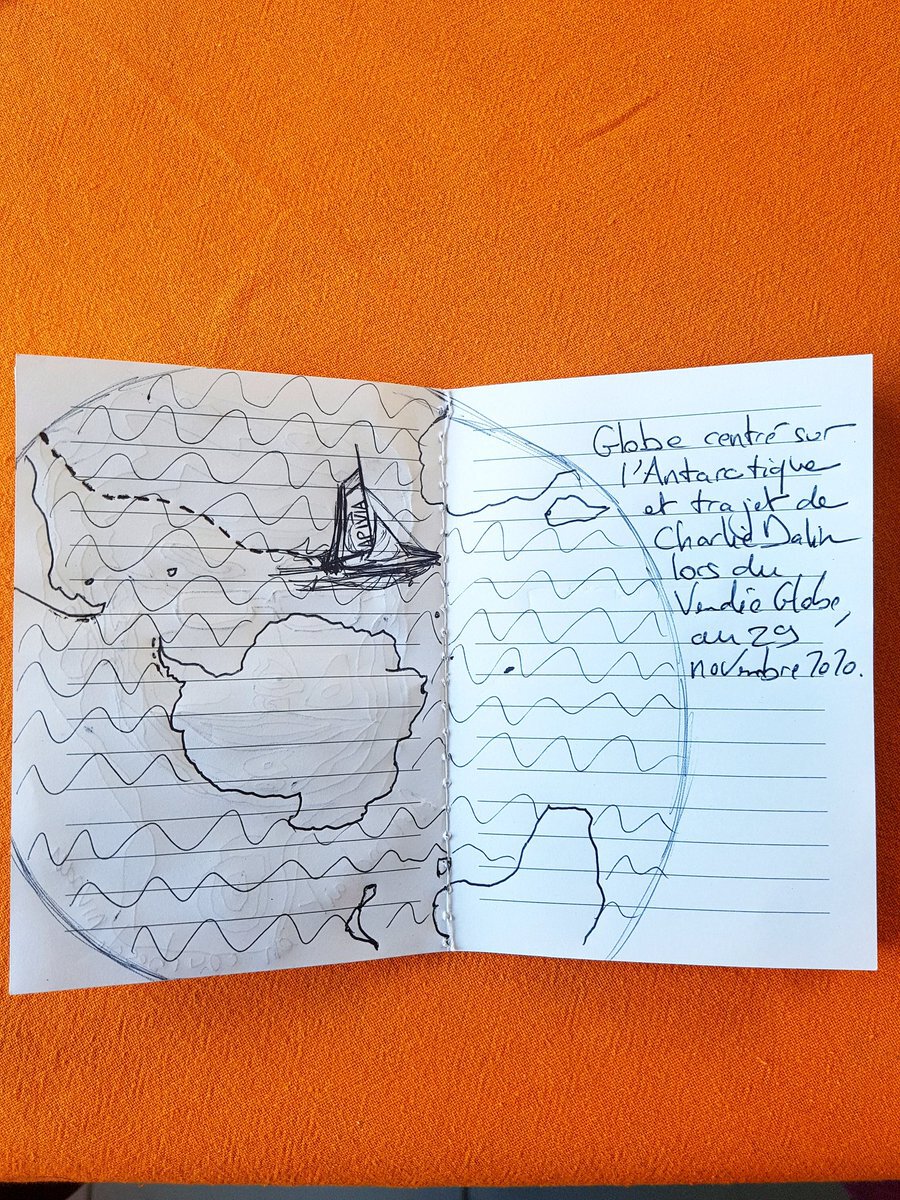 APIVIA
Globe centré sur
l'Antarctique
et trajet de
Charlie Dalin
lors du
Vendée Globe,
au 29
novembre 2020.